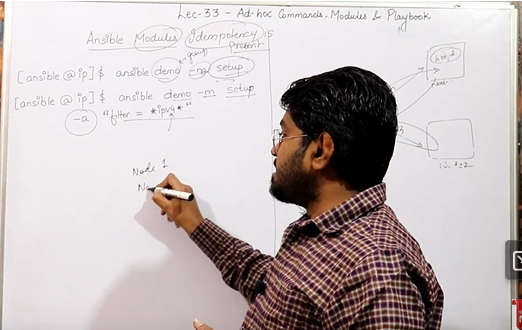 Lec-33 - Ad-hoc Commands, Modules & Playbook
Ansible Modules Idempotency is
Present
group
[ansible @ ip]$ ansible demo -m setup
[ansible @ ip]$ ansible demo -m setup
-a "filter = *ipv4*"
Node 1